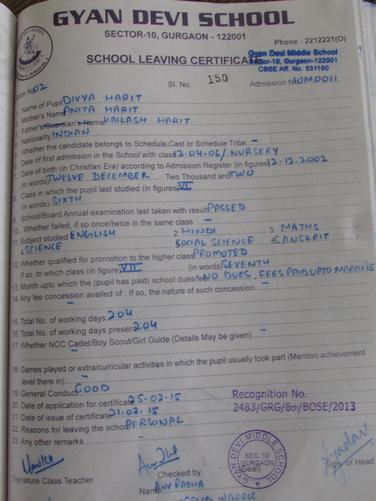 GYAN DEVI SCHOOL
SECTOR-10, GURGAON - 122001
Phone : 2212221(O)
SCHOOL LEAVING CERTIFICATE
Gyan Devi Middle School
Sector-10, Gurgaon-122001
CBSE Aff. No. 531190
Book No. 02 Sl. No. 159 Admission No 10MD011
Name of Pupil DIVYA HARIT
Mother's Name ANITA HARIT
Father's/Guardian's Name KAILASH HARIT
Nationality INDIAN
Whether the candidate belongs to Schedule Cast or Schedule Tribe. -
Date of first admission in the School with class 12.04.06/ NURSERY
Date of birth (in Christian Era) according to Admission Register (in figures) 12.12.2002
(in words) TWELVE DECEMBER Two Thousand and TWO
Class in which the pupil last studied (in figures) VI
(in words) SIXTH
School/Board Annual examination last taken with result PASSED
10. Whether failed, if so once/twice in the same class -
Subject studied 1 ENGLISH 2 HINDI 3. MATHS
4 SCIENCE SOCIAL SCIENCE 6 SANSKRIT
12. Whether qualified for promotion to the higher class PROMOTED
If so, to which class (in figure) VII (in words) SEVENTH
13. Month upto which the (pupil has paid) school dues/fee NO DUES, FEES PAID UPTO MARCH 15
14. Any fee concession availed of : If so, the nature of such concession -
15. Total No. of working days 204
16. Total No. of working days present 204
17. Whether NCC Cadet/Boy Scout/Girl Guide (Details May be given) -
18. Games played or extra/curricular activities in which the pupil usually took part (Mention achievement
level there in) -
19. General Conduct GOOD
20. Date of application for certificate 25.02.15
21. Date of issue of certificate 21.03.15
22. Reasons for leaving the school PERSONAL
23. Any other remarks
Recognition No.
2483/GRG/8th/BOSE/2013
GYAN DEVI MIDDLE SCHOOL
SEC. 10
GURGAON
(Seal)
Signature Class Teacher
Checked by
Name ANURADHA
Sign of Head